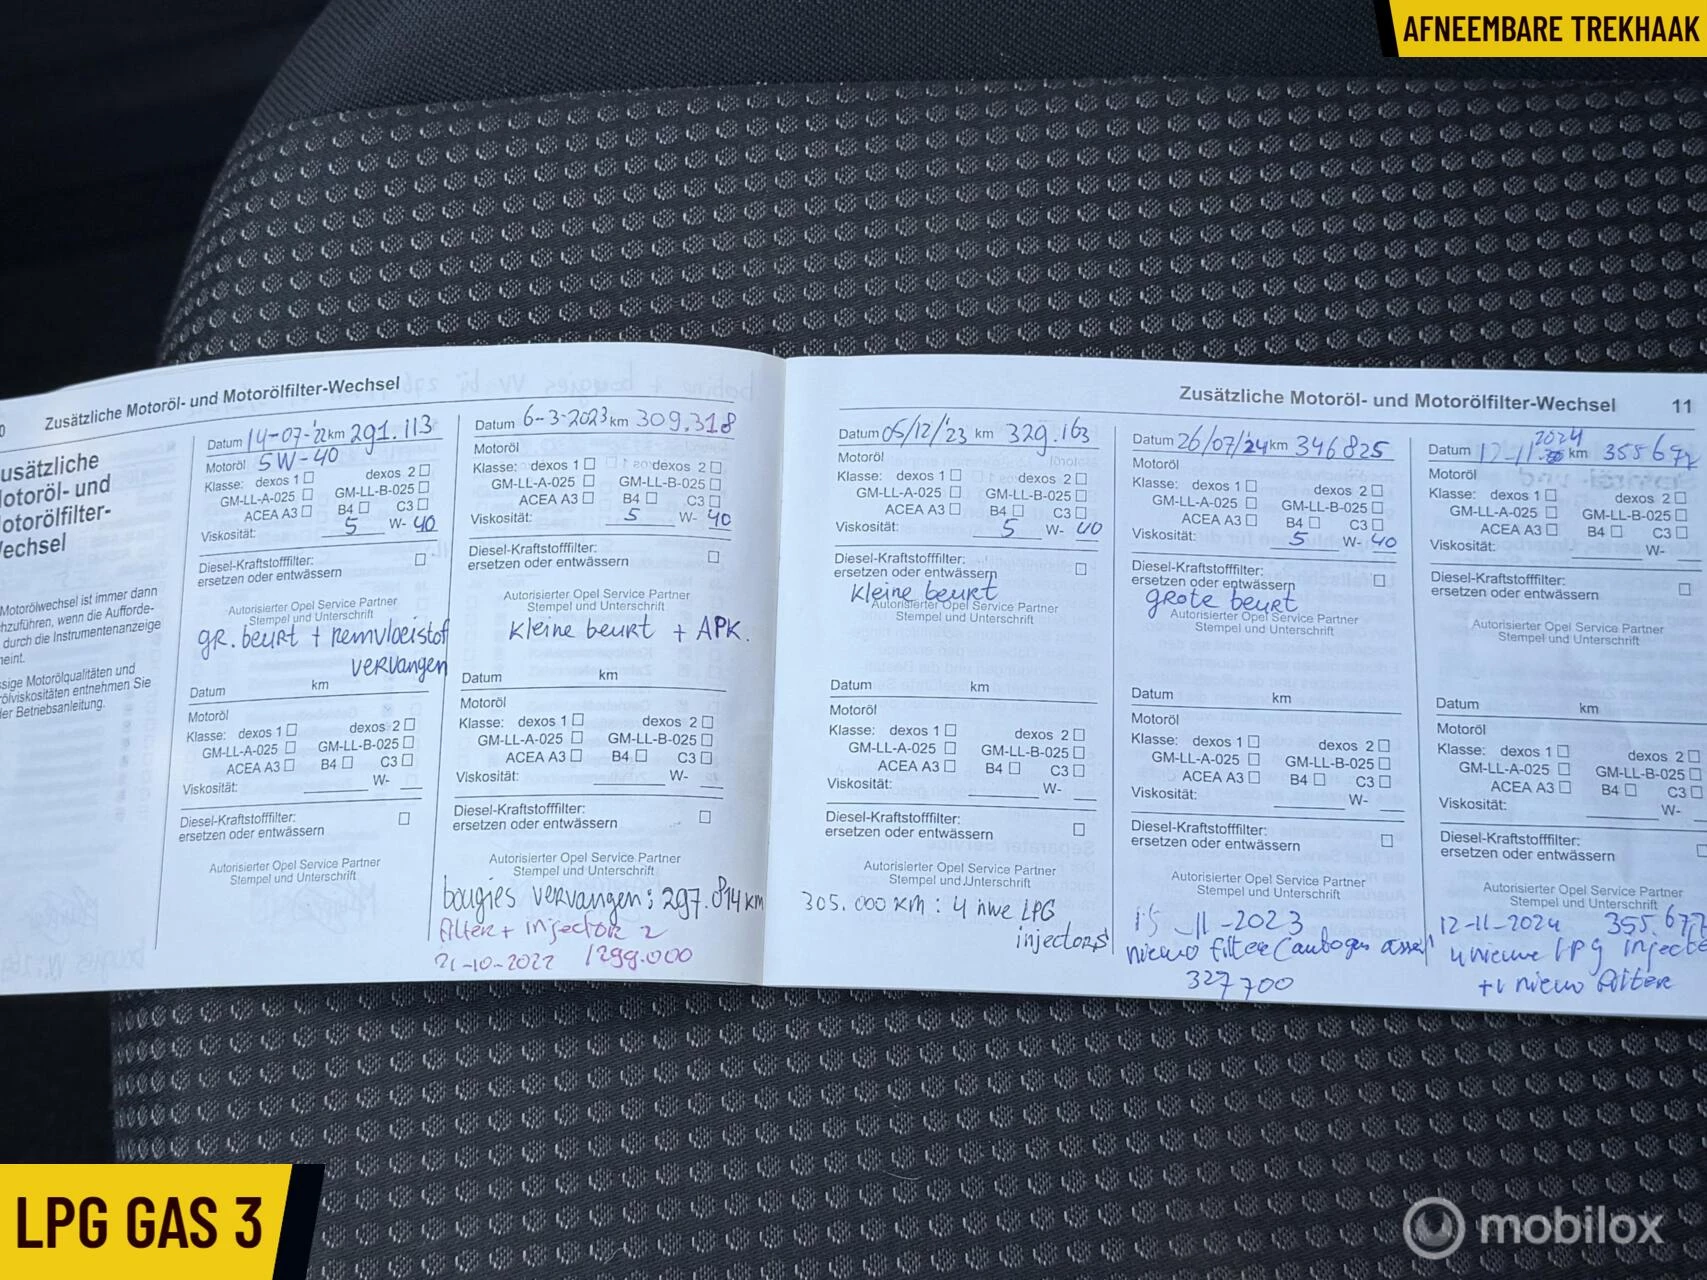 AFNEEMBARE TREKHAAK
Zusätzliche Motoröl- und Motorölfilter-Wechsel
usätzliche
otoröl- und
otorölfilter-
echsel
Motorölwechsel ist immer dann
hzuführen, wenn die Aufforde-
durch die Instrumentenanzeige
eint.
ssige Motorölqualitäten und
ölviskositäten entnehmen Sie
er Betriebsanleitung.
Datum 14-07-'22 km 291.113
Motoröl 5W-40
Klasse: dexos 1 dexos 2
GM-LL-A-025 GM-LL-B-025
ACEA A3 B4 C3
Viskosität: 5 W- 40
Diesel-Kraftstofffilter:
ersetzen oder entwässern
Autorisierter Opel Service Partner
Stempel und Unterschrift
gr. beurt + remvloeistof
vervangen
Datum km
Motoröl
Klasse: dexos 1 dexos 2
GM-LL-A-025 GM-LL-B-025
ACEA A3 B4 C3
Viskosität: W-
Diesel-Kraftstofffilter:
ersetzen oder entwässern
Autorisierter Opel Service Partner
Stempel und Unterschrift
Datum 6-3-2023 km 309.318
Motoröl
Klasse: dexos 1 dexos 2
GM-LL-A-025 GM-LL-B-025
ACEA A3 B4 C3
Viskosität: 5 W- 40
Diesel-Kraftstofffilter:
ersetzen oder entwässern
Autorisierter Opel Service Partner
Stempel und Unterschrift
kleine beurt + APK.
Datum km
Motoröl
Klasse: dexos 1 dexos 2
GM-LL-A-025 GM-LL-B-025
ACEA A3 B4 C3
Viskosität: W-
Diesel-Kraftstofffilter:
ersetzen oder entwässern
Autorisierter Opel Service Partner
Stempel und Unterschrift
bougies vervangen: 297.814 km
filter + injector 2
21-10-2022 /299.000
Zusätzliche Motoröl- und Motorölfilter-Wechsel 11
Datum 05/12/'23 km 329.163
Motoröl
Klasse: dexos 1 dexos 2
GM-LL-A-025 GM-LL-B-025
ACEA A3 B4 C3
Viskosität: 5 W- 40
Diesel-Kraftstofffilter:
ersetzen oder entwässern
kleine beurt
Autorisierter Opel Service Partner
Stempel und Unterschrift
Datum km
Motoröl
Klasse: dexos 1 dexos 2
GM-LL-A-025 GM-LL-B-025
ACEA A3 B4 C3
Viskosität: W-
Diesel-Kraftstofffilter:
ersetzen oder entwässern
Autorisierter Opel Service Partner
Stempel und Unterschrift
305.000 km : 4 nwe LPG
injectors
Datum 26/07/'24 km 346825
Motoröl
Klasse: dexos 1 dexos 2
GM-LL-A-025 GM-LL-B-025
ACEA A3 B4 C3
Viskosität: 5 W- 40
Diesel-Kraftstofffilter:
ersetzen oder entwässern
grote beurt
Autorisierter Opel Service Partner
Stempel und Unterschrift
Datum km
Motoröl
Klasse: dexos 1 dexos 2
GM-LL-A-025 GM-LL-B-025
ACEA A3 B4 C3
Viskosität: W-
Diesel-Kraftstofffilter:
ersetzen oder entwässern
Autorisierter Opel Service Partner
Stempel und Unterschrift
15-11-2023
nieuw filter (autogas
327700
Datum 12-11- 2024 km 355677
Motoröl
Klasse: dexos 1 dexos 2
GM-LL-A-025 GM-LL-B-025
ACEA A3 B4 C3
Viskosität: W-
Diesel-Kraftstofffilter:
ersetzen oder entwässern
Autorisierter Opel Service Partner
Stempel und Unterschrift
Datum km
Motoröl
Klasse: dexos 1 dexos 2
GM-LL-A-025 GM-LL-B-025
ACEA A3 B4 C3
Viskosität: W-
Diesel-Kraftstofffilter:
ersetzen oder entwässern
Autorisierter Opel Service Partner
Stempel und Unterschrift
12-11-2024 355.677
4 nieuwe LPG injecto
+1 nieuw filter
LPG GAS 3
mobilox